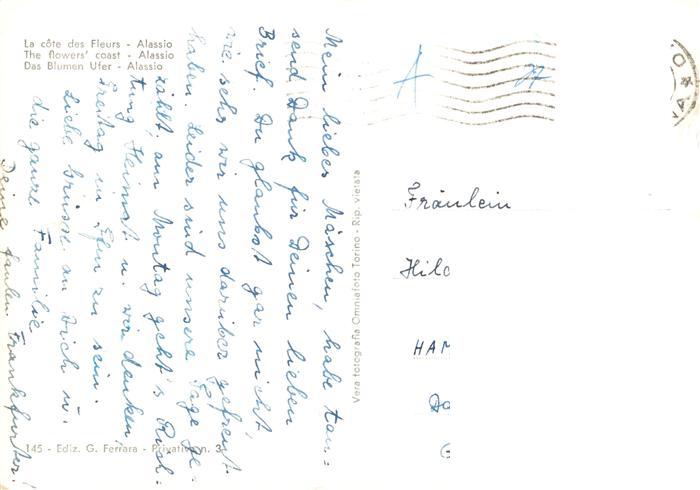 La côte des Fleurs - Alassio
The flowers' coast - Alassio
Das Blumen Ufer - Alassio
Mein liebes Mäschen, habe tau-
send Dank für Deinen lieben
Brief. Du glaubst gar nicht,
wie sehr wir uns darüber gefreut
haben. Leider sind unsere Tage ge-
zählt, am Montag geht's Rich-
tung Heimat u. wir denken,
Freitag in Efm zu sein.
Liebe Grüsse an Dich u.
die ganze Familie
Deine faulen Frankfurter!
Vera fotografia Omniafoto Torino - Rip. vietata
145 - Ediz. G. Ferrara - Privativa n. 3
Fräulein
Hild
HAM
Da
G